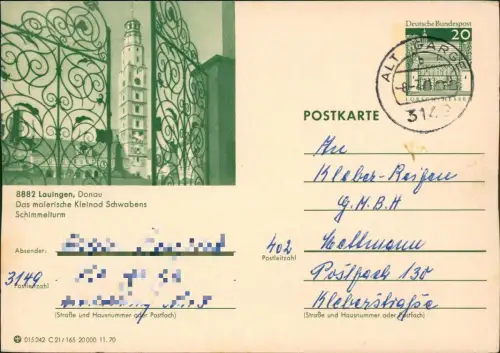 Deutsche Bundespost
20
ALT GARGE
314
POSTKARTE
An
Kleber-Reifen
G.M.B.H
8882 Lauingen, Donau
Das malerische Kleinod Schwabens
Schimmelturm
Absender:
402 Mettmann
Postleitzahl
3149
Postleitzahl
Postfach 130
Kleberstraße
(Straße und Hausnummer oder Postfach)
(Straße und Hausnummer oder Postfach)
015242 C 21/165 20000 11.70